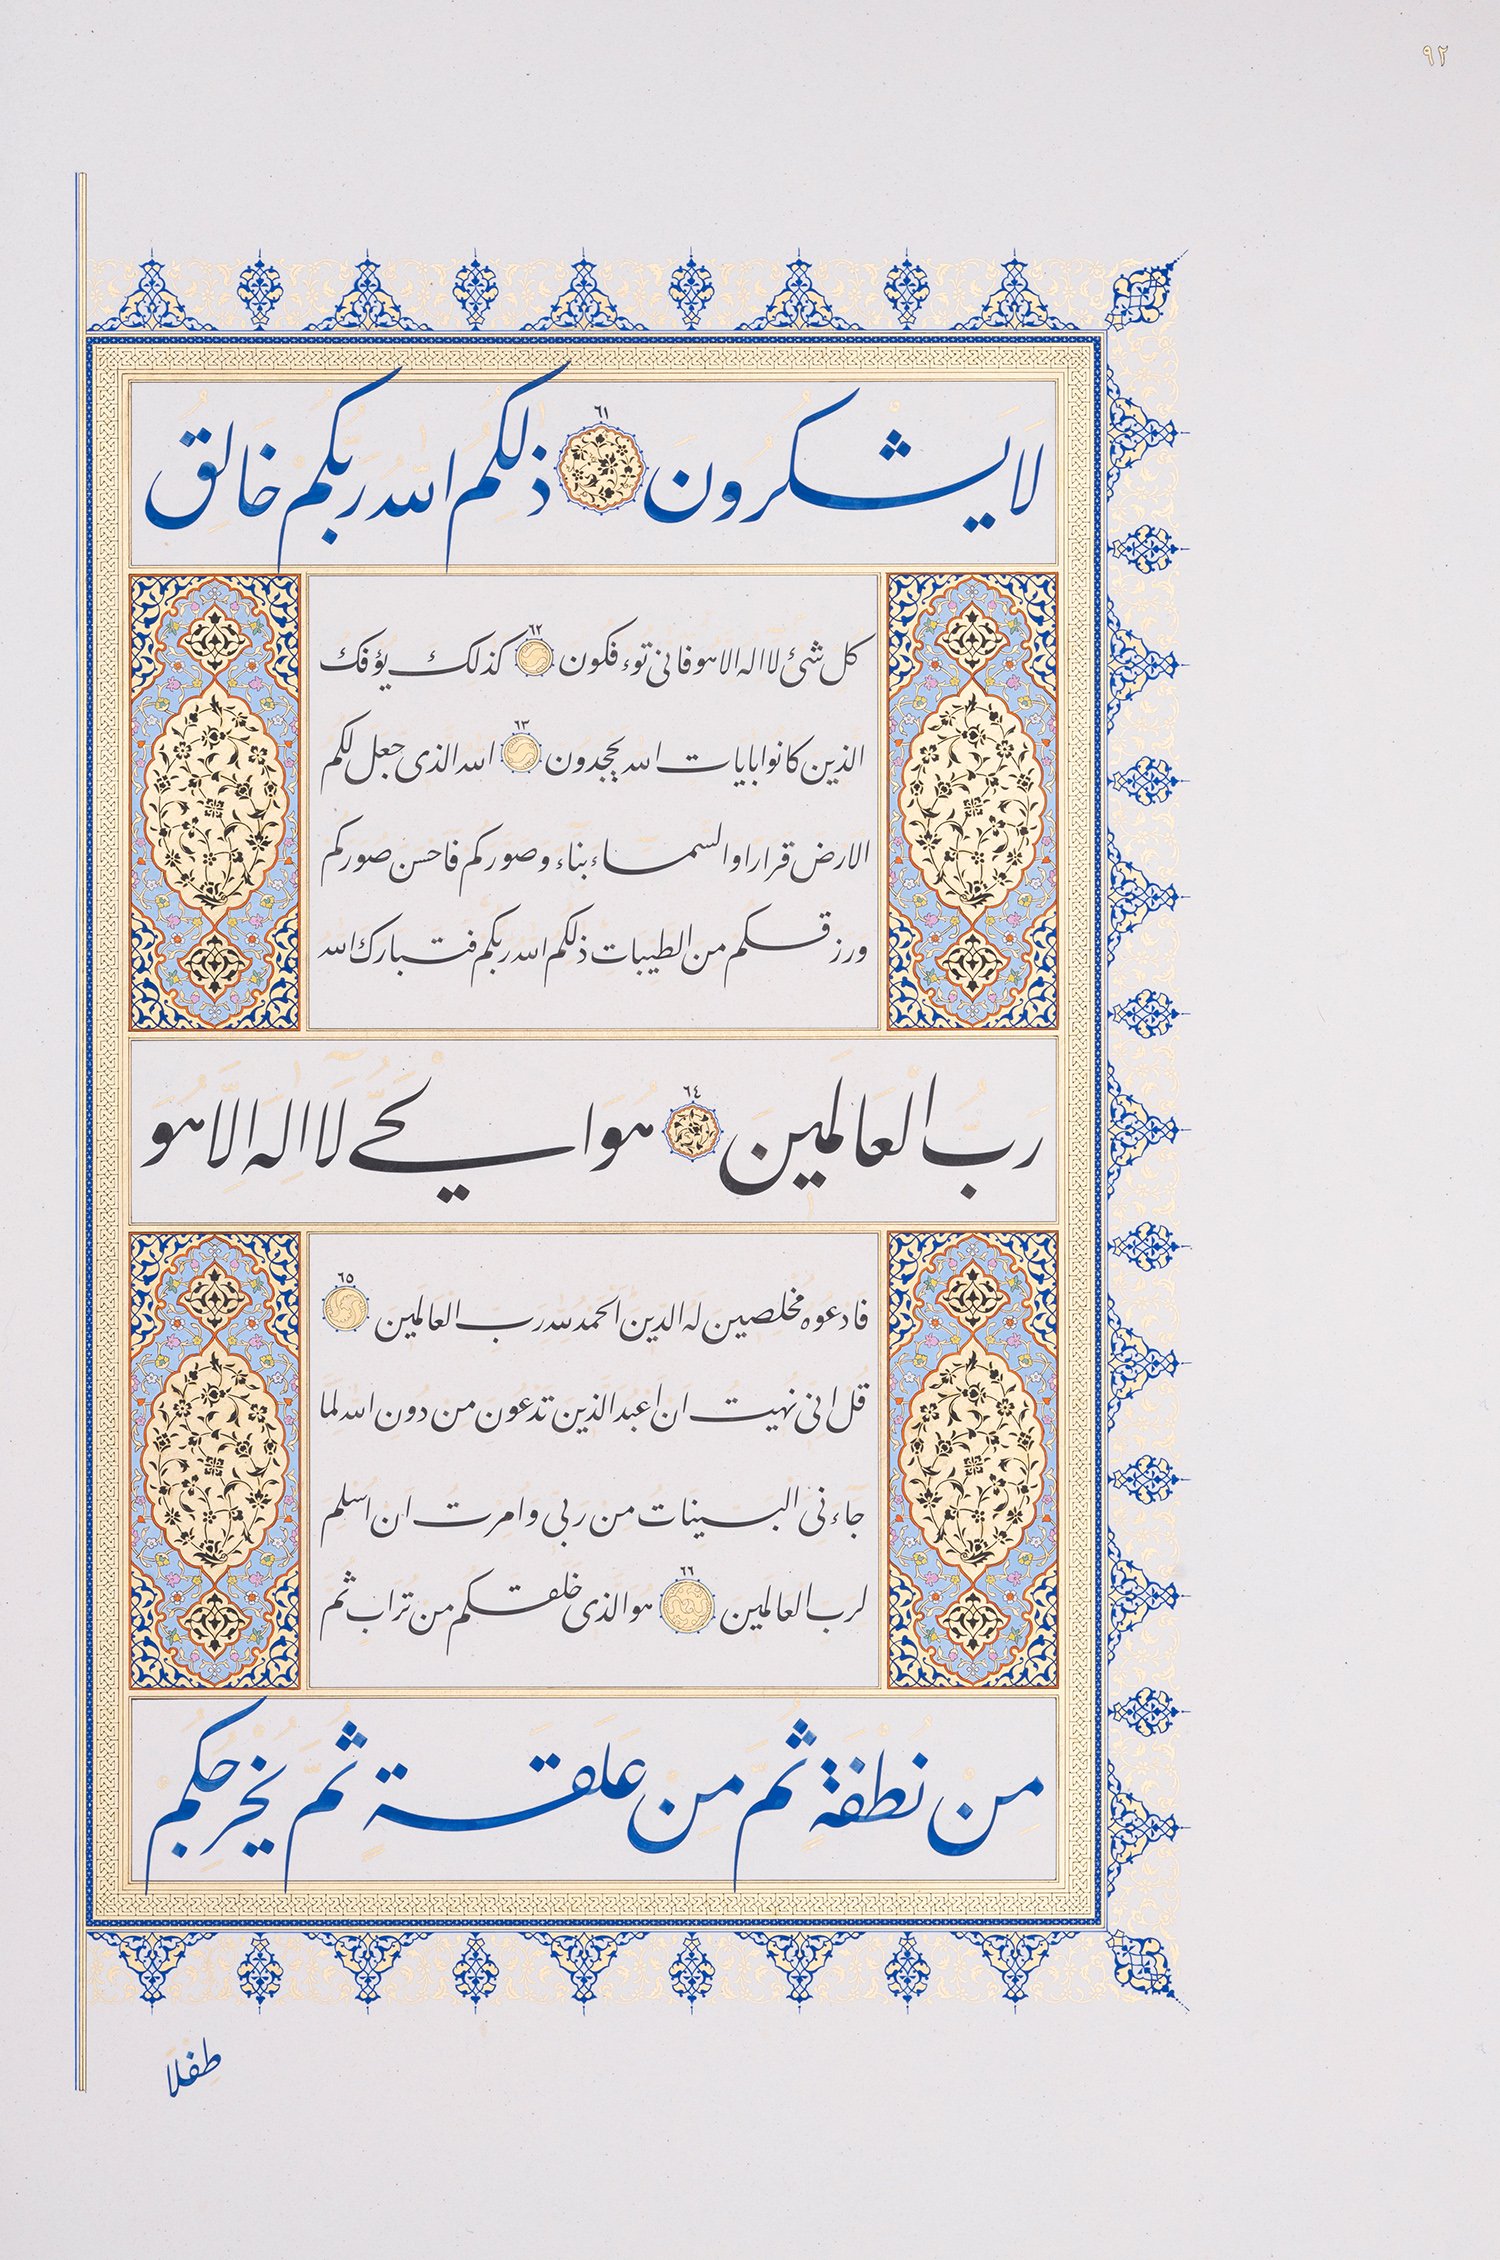 ٩٢
لا يشكرون ٦١ ذلكم الله ربكم خالق
كل شئ لا اله الا هو فانى توءفكون ٦٢ كذلك يؤفك
الذين كانوا بايات الله يجحدون ٦٣ الله الذى جعل لكم
الارض قرارا و السماء بناء و صوركم فاحسن صوركم
و رزقكم من الطيبات ذلكم الله ربكم فتبارك الله
رَبُّ العَالمَين ٦٤ هُوَ الحَىُّ لا اله الا هُو
فادعوه مخلصين له الدين الحمد لله رَبِّ العالمَين ٦٥
قُل انى نُهيتُ ان اعبد الذين تدعُون من دُون الله لمّا
جَاءنى البينات من رَبى و امرتُ ان اُسلم
لرب العالمَين ٦٦ هُو الذى خلقكم من تُراب ثم
مِنْ نُطْفَةٍ ثُمَّ مِنْ عَلَقَة ثُمَّ يُخْرِجُكُمْ
طِفْلاً